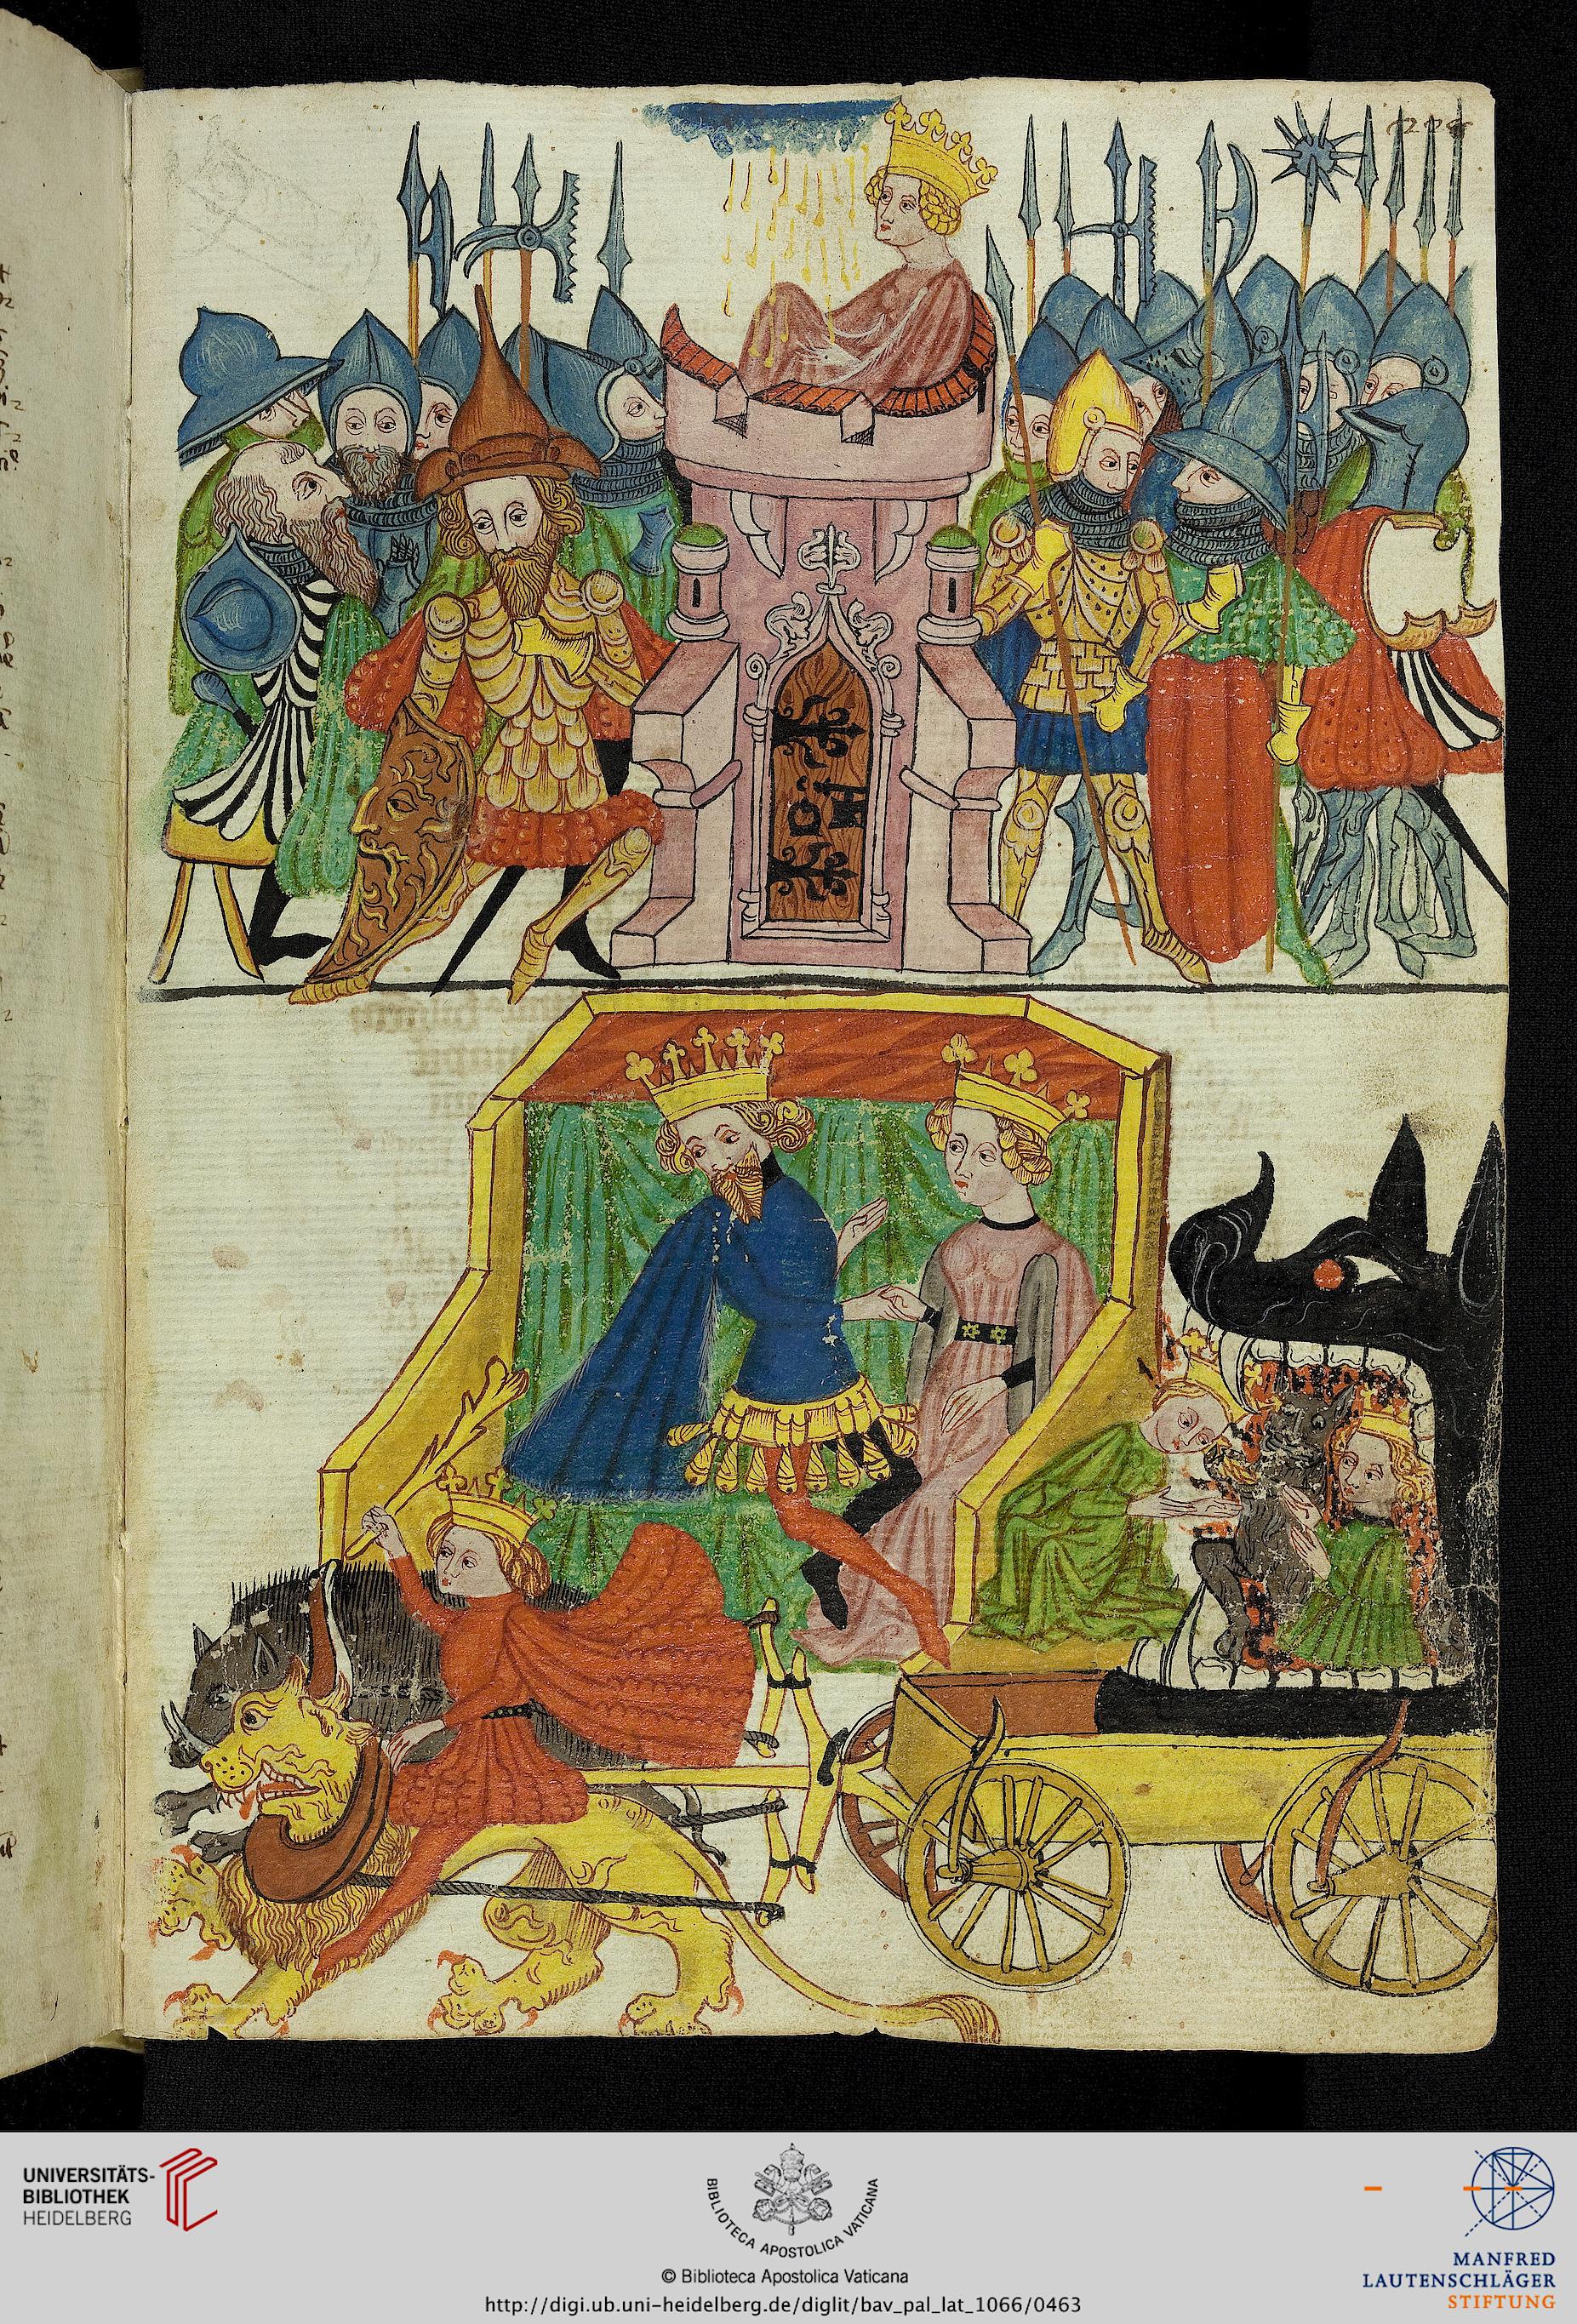 UNIVERSITÄTS-
BIBLIOTHEK
HEIDELBERG
BIBLIOTECA APOSTOLICA VATICANA
© Biblioteca Apostolica Vaticana
http://digi.ub.uni-heidelberg.de/diglit/bav_pal_lat_1066/0463
MANFRED
LAUTENSCHLÄGER
STIFTUNG